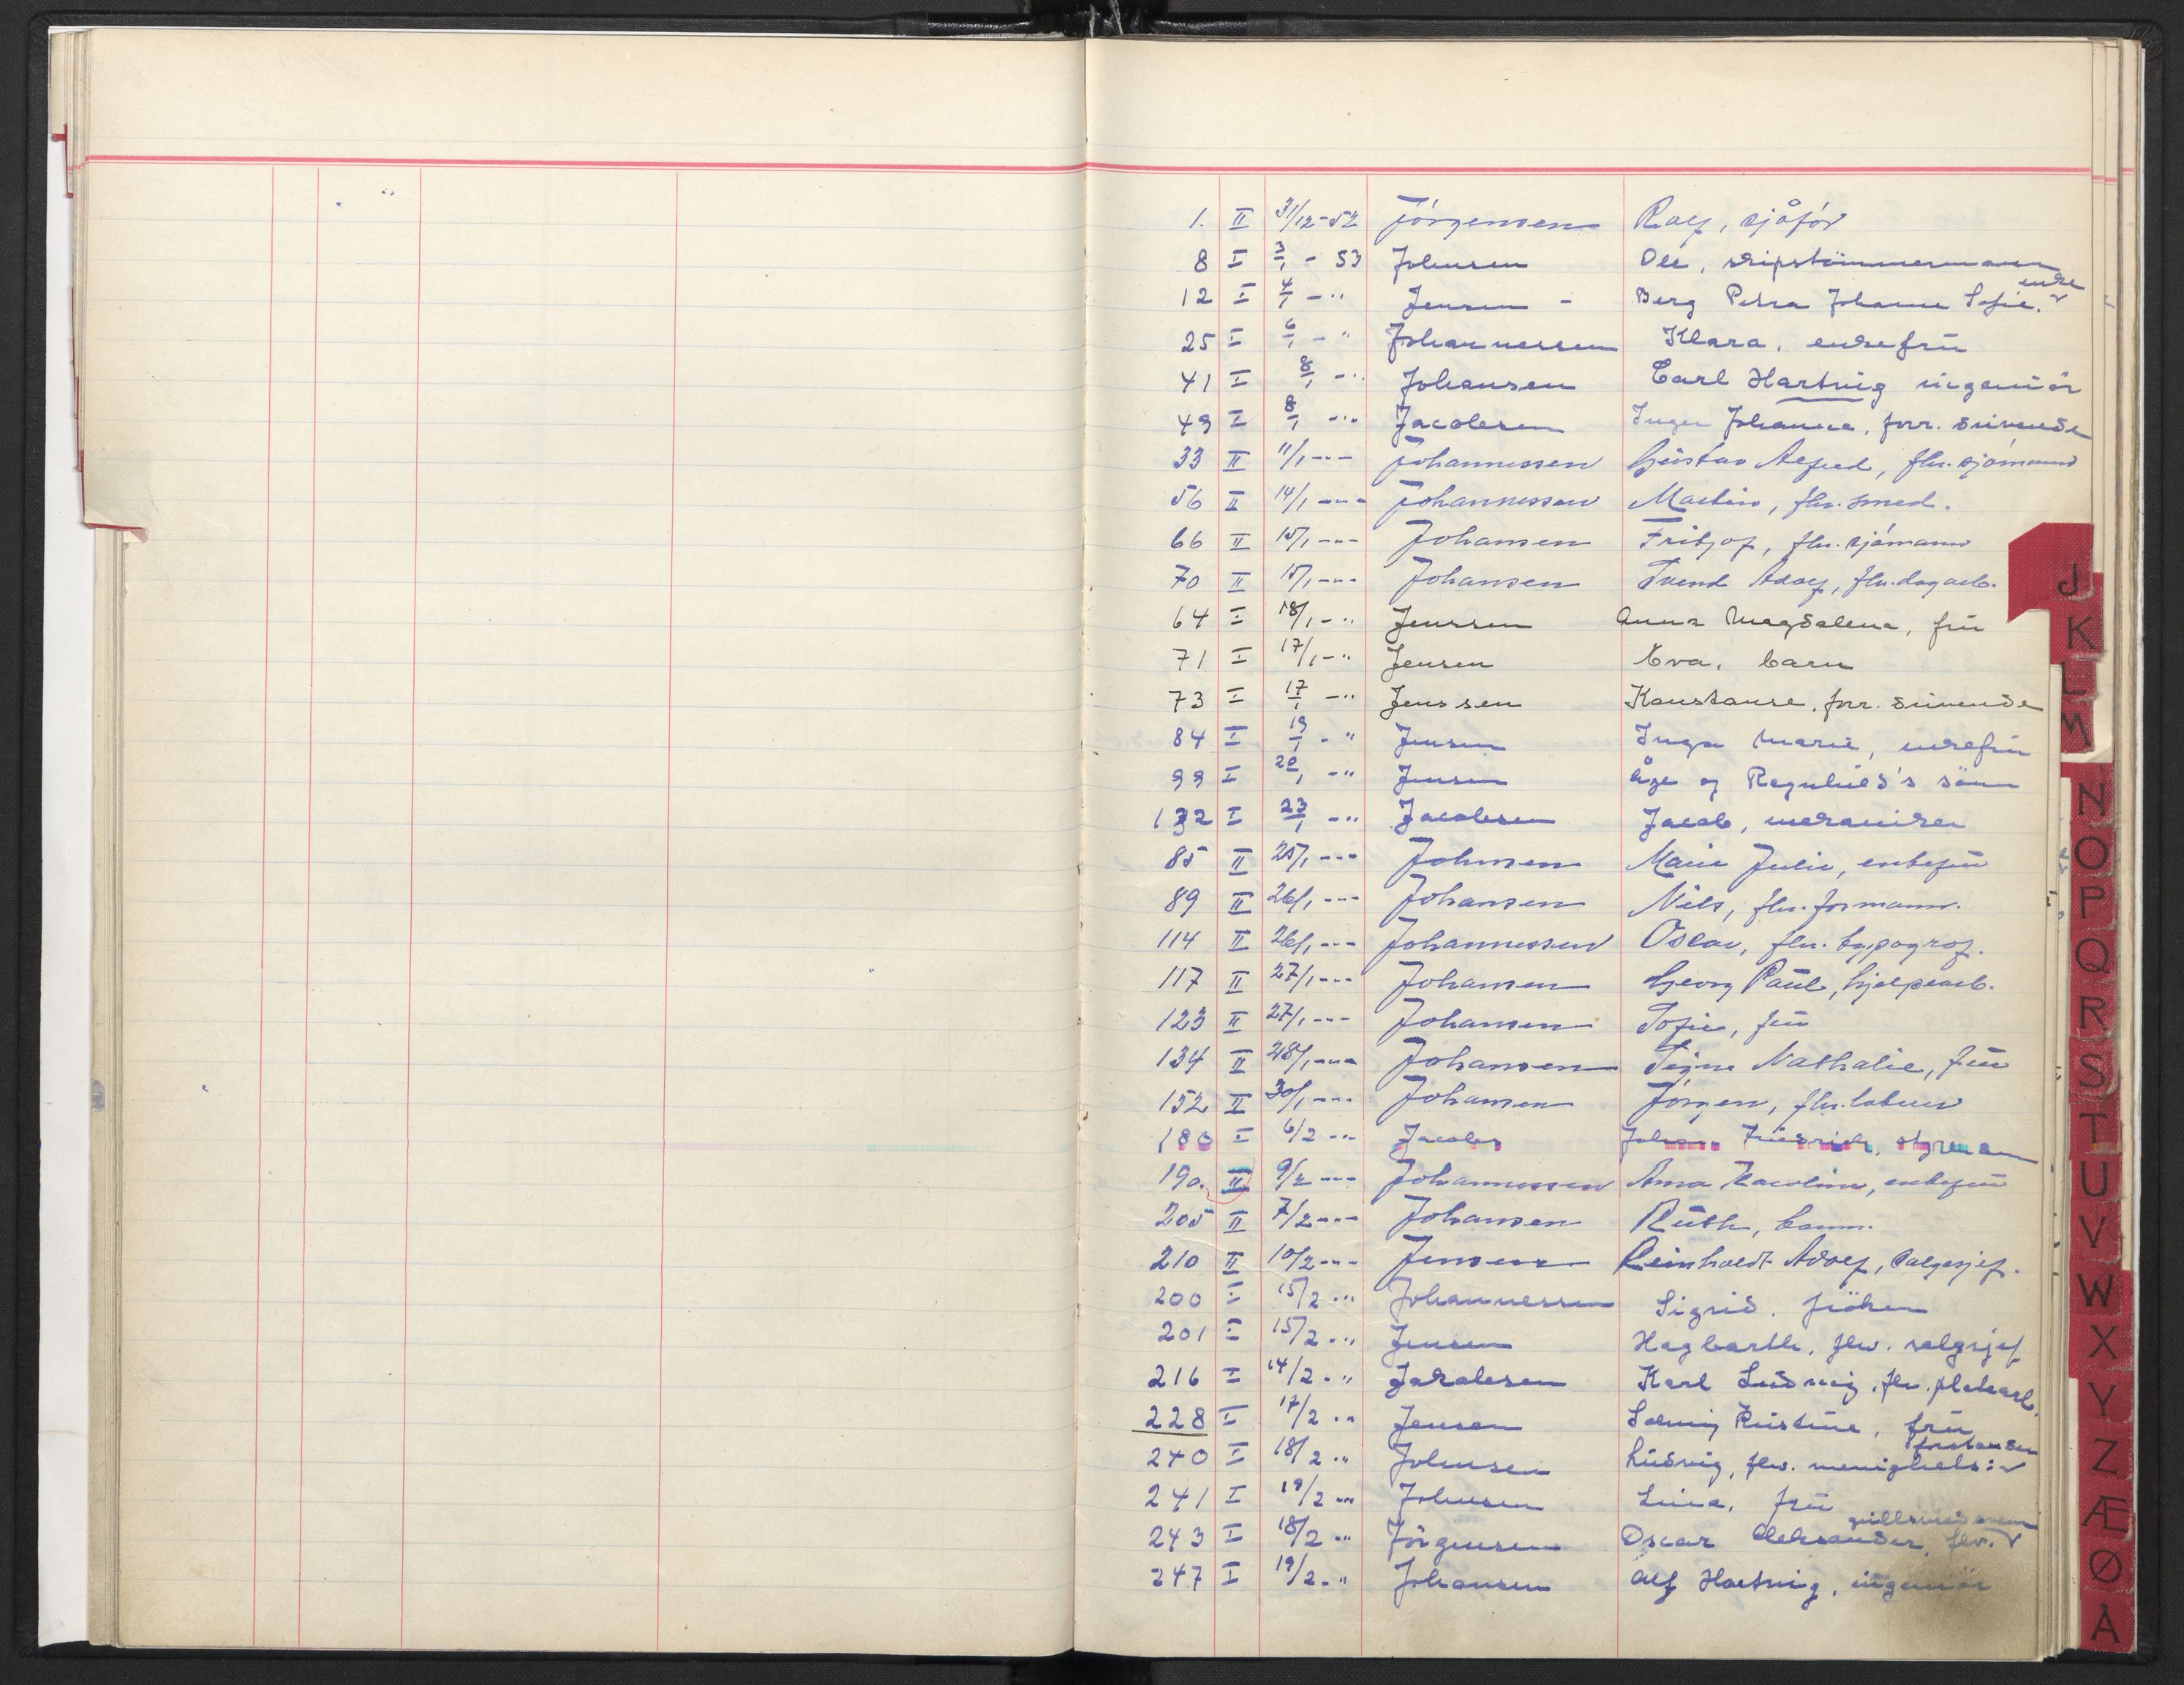 1. II 31/12-52 Jörgensen Rolf, sjåför
8 I 3/1 - 53 Johnsen Ole, skipstömmermann
12 I 4/1 - " Jensen - Berg Petra Johanne Sofie, enke
25 I 6/1 - " Johannessen Klara, enkefru
41 I 8/1 - " Johansen Carl Hartvig ingeniör
49 I 8/1 - " Jacobsen Inger Johanne, forr. drivende
33 II 11/1 - " - Johannessen Gustav Alfred, fhv. sjömann
56 II 14/1 - " - Johannessen Martin, fhv. smed.
66 II 15/1 - " - Johansen Fritjof, fhv. sjömann
70 II 15/1 - " - Johansen Svend Adolf, fhv. dagarb.
64 I 18/1 - " Jenssen Anna Magdalena, fru
71 I 17/1 - " Jensen Eva, barn
73 I 17/1 - " Jenssen Konstanse, forr. drivende
84 I 19/1 - " Jensen Inga Marie, enkefru
99 I 20/1 - " Jensen Åge og Ragnhild's sönn
132 I 23/1 - " Jacobsen Jacob, mekaniker
85 II 25/1 - " - Johnsen Marie Julie, enkefru
89 II 26/1 - " - Johansen Nils, fhv. formann.
114 II 26/1 - " - Johannessen Oscar, fhv. typograf.
117 II 27/1 - " - Johansen Georg Paul, hjelpearb.
123 II 27/1 - " - Johansen Sofie, fru
134 II 28/1 - " - Johansen Signe Nathalie, fru
152 II 30/1 - " - Johansen Jörgen, fhv.
180 I 6/2 - " Jacobs Johan Friedrich, styrmann
190. II 9/2 - " - Johannessen Anna Karoline, enkefru
205 II 7/2 - " - Johansen Ruth, barn.
210 II 10/2 - " - Jensen Reinholdt Adolf, salgssjef.
200 I 15/2 - " Johannessen Sigrid, fröken
201 I 15/2 - " Jensen Hagbarth, fhv. salgsjef
216 I 14/2 - " Jakobsen Karl Ludvig, fhv.
228 I 17/2 - " Jensen Solveig Kristine, fru
240 I 18/2 - " Johnsen Ludvig, fhv. menighets: forstander
241 I 19/2 - " Johnsen Lina, fru
243 I 18/2 - " Jörgensen Oscar Aleksander, fhv. gullsmedsvenn
247 I 19/2 - " Johansen Alf Hartvig, ingeniör
J
K
L
M
N
O
P
Q
R
S
T
U
V
W
X
Y
Z
Æ
Ø
Å